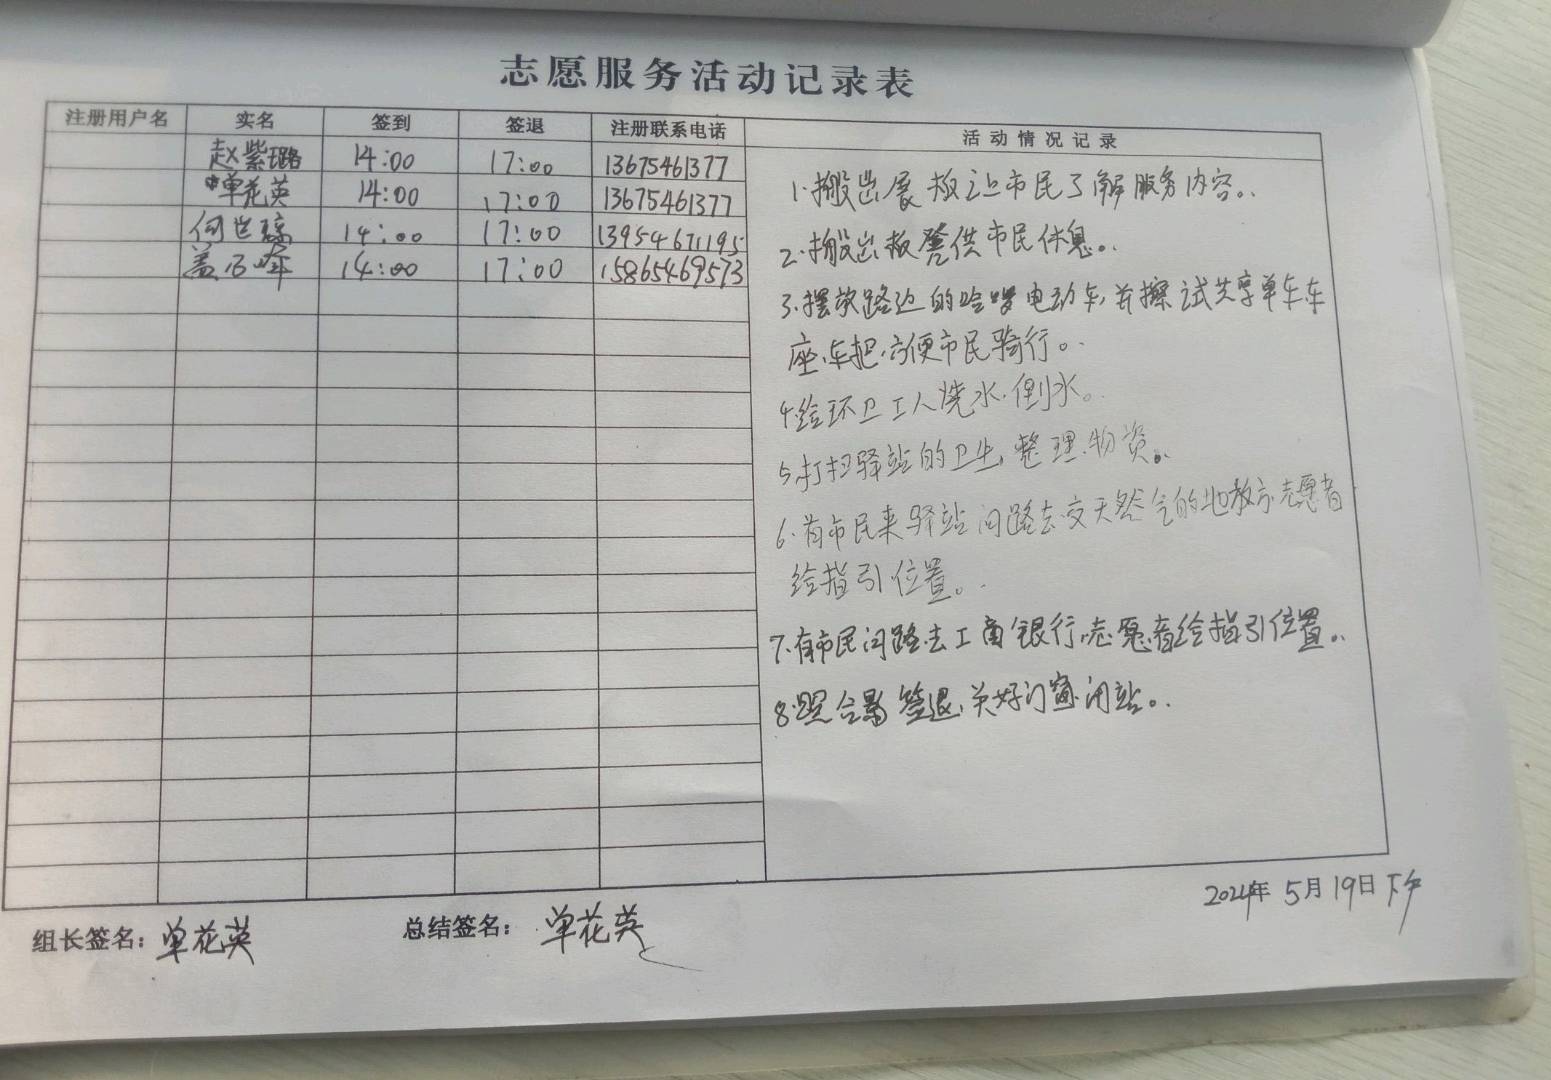 志愿服务活动记录表
注册用户名 实名 签到 签退 注册联系电话 活动情况记录
赵紫璐 14:00 17:00 13675461377
单花英 14:00 17:00 13675461377
何世 14:00 17:00 13954671195
盖 峰 14:00 17:00 15865469573
1.搬出展板让市民了解服务内容。
2.搬出板凳供市民休息。
3.摆放路边的哈啰电动车,并擦试共享单车车
座.车把.方便市民骑行。
4.给环卫工人烧水.倒水。
5.打扫驿站的卫生,整理物资。
6.有市民来驿站问路去交天然气的地方.志愿者
给指引位置。
7.有市民问路去工商银行.志愿者给指引位置。
8.照合影签退.关好门窗闭站。
2024年5月19日下午
组长签名:单花英 总结签名:单花英